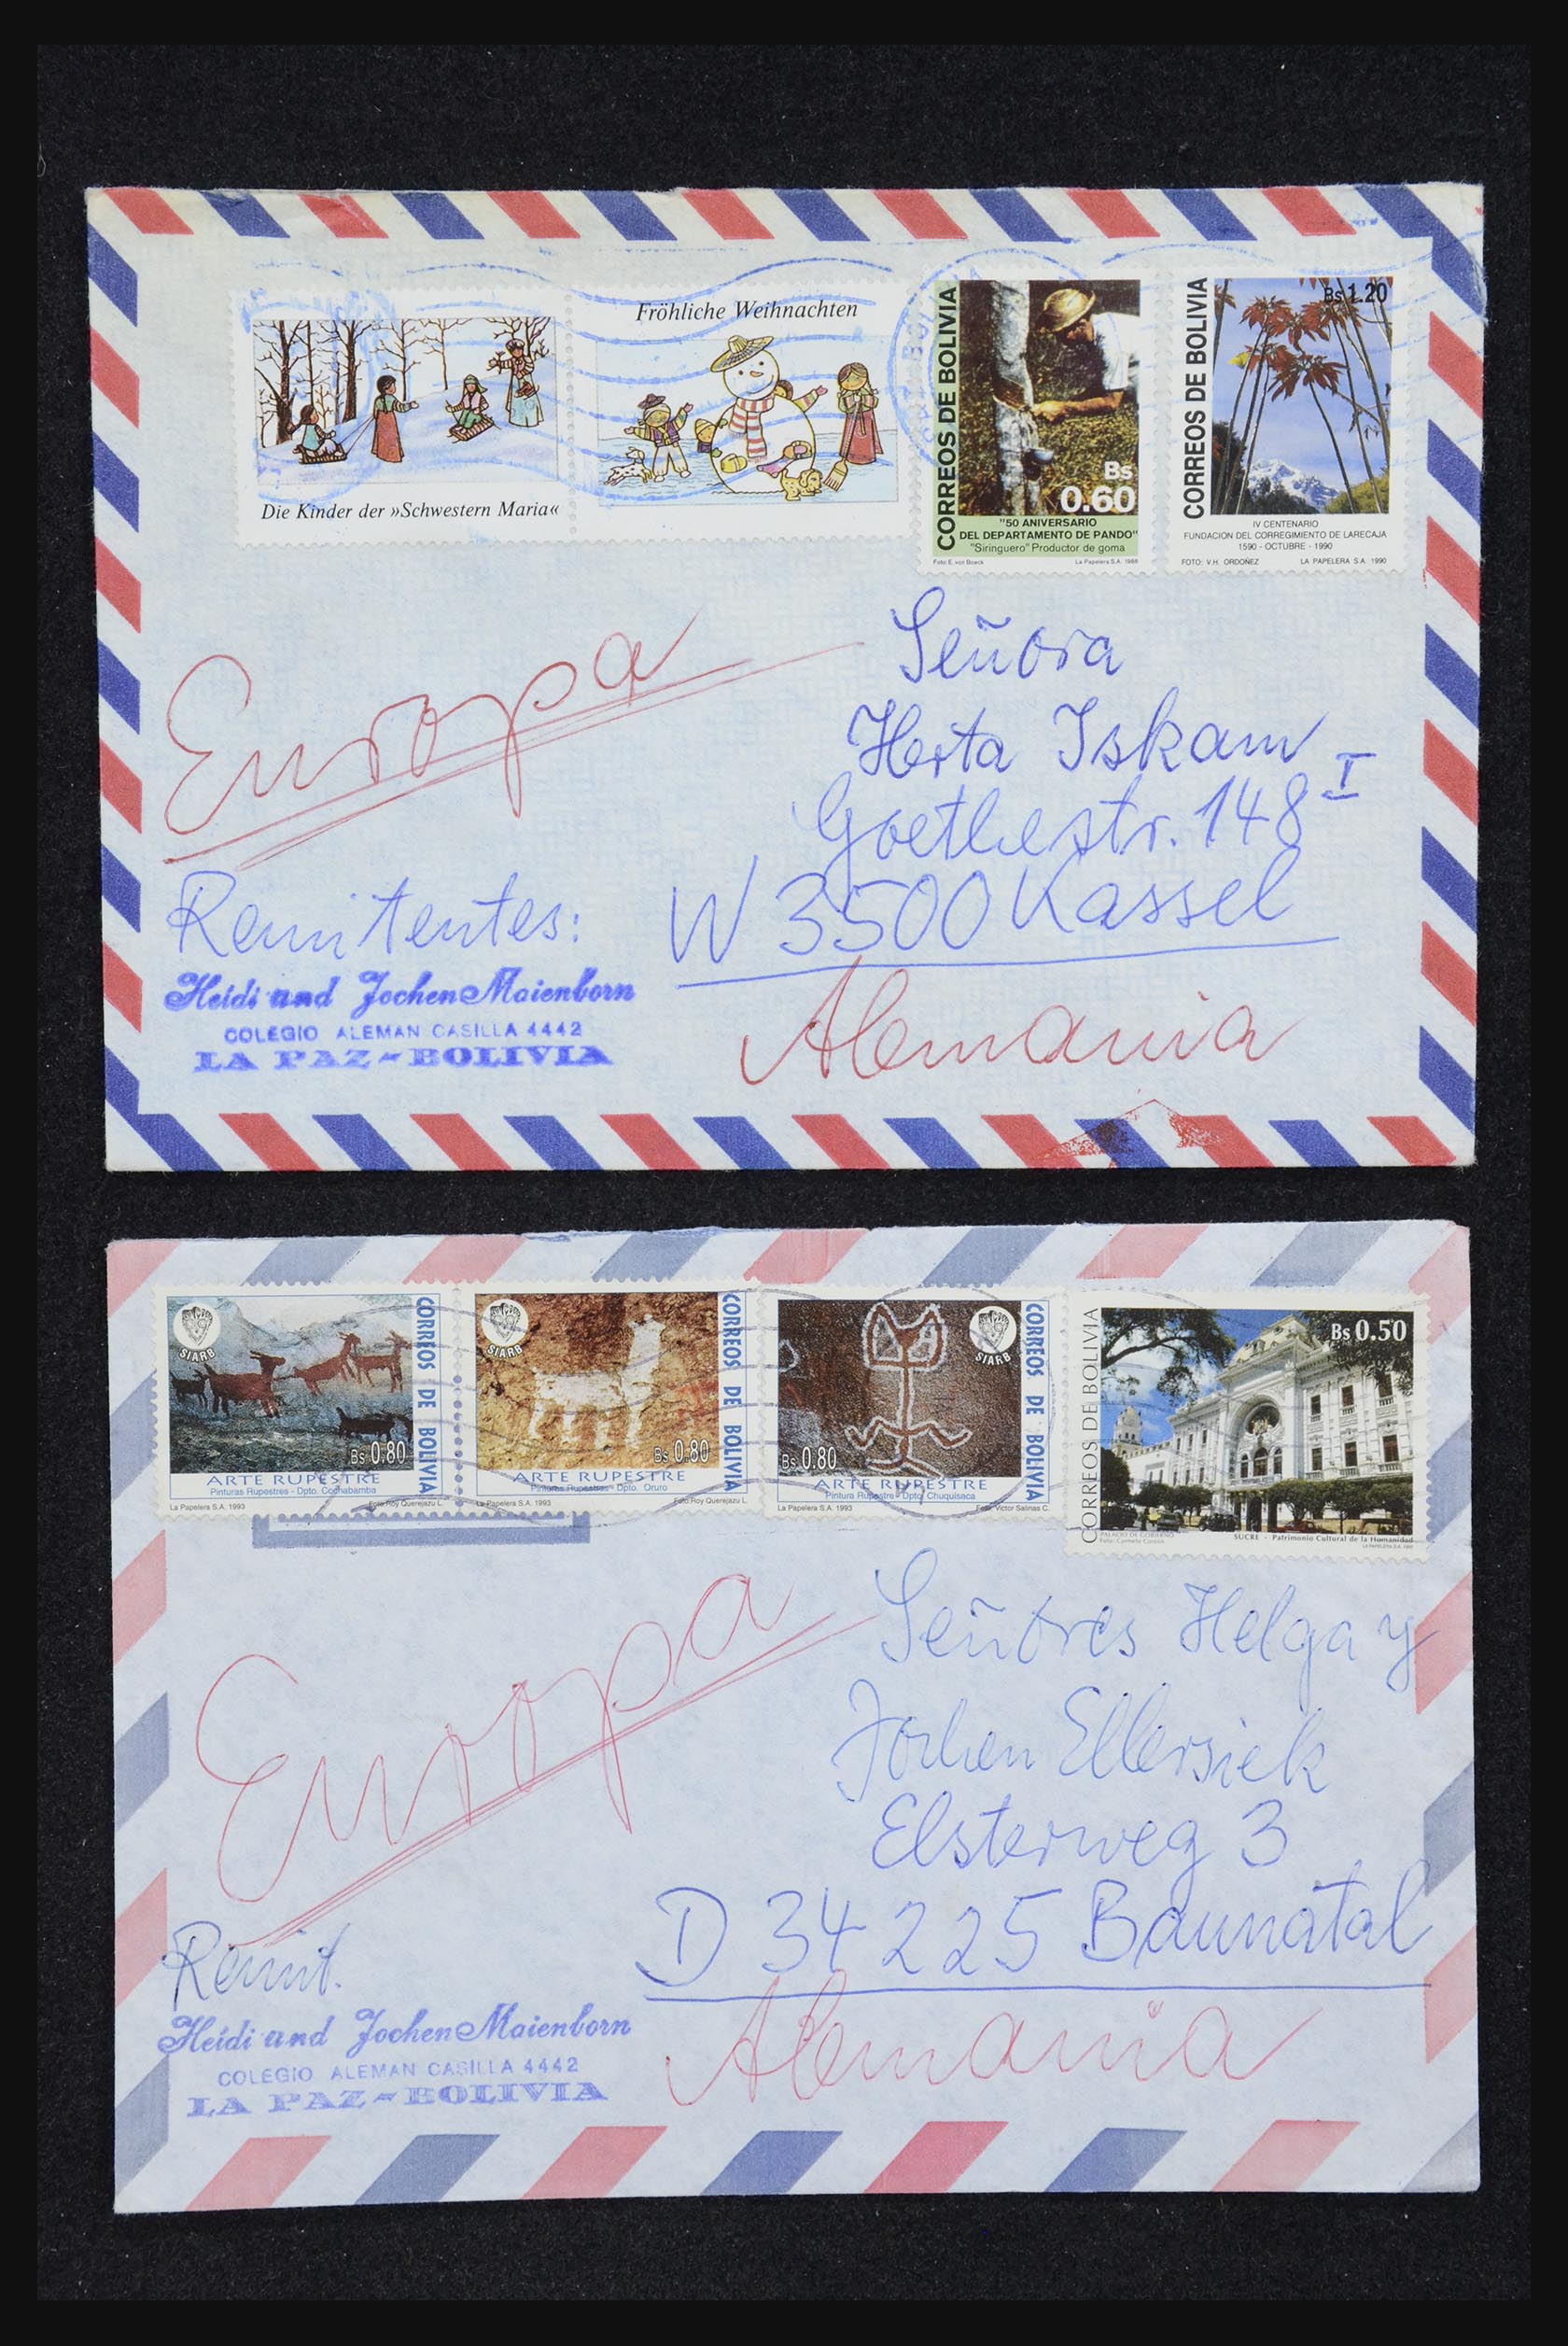 Fröhliche Weihnachten
Die Kinder der »Schwestern Maria«
CORREOS DE BOLIVIA
Bs
0.60
"50 ANIVERSARIO
DEL DEPARTAMENTO DE PANDO"
"Siringuero" Productor de goma
Foto: E. von Boeck
La Papelera S.A. 1988
CORREOS DE BOLIVIA
Bs 1.20
IV CENTENARIO
FUNDACION DEL CORREGIMIENTO DE LARECAJA
1590 - OCTUBRE - 1990
FOTO: V.H. ORDOÑEZ
LA PAPELERA S.A. 1990
Europa
Señora
Herta Iskam
Goethestr. 148 I
W 3500 Kassel
Alemania
Remitentes:
Heidi und Jochen Maienborn
COLEGIO ALEMAN CASILLA 4442
LA PAZ - BOLIVIA
SIARB
CORREOS DE BOLIVIA
Bs 0.80
ARTE RUPESTRE
Pinturas Rupestres - Dpto. Cochabamba
La Papelera S.A. 1993
Foto: Roy Querejazu L.
SIARB
CORREOS DE BOLIVIA
Bs 0.80
ARTE RUPESTRE
Pinturas Rupestres - Dpto. Oruro
La Papelera S.A. 1993
Foto: Roy Querejazu L.
SIARB
CORREOS DE BOLIVIA
Bs 0.80
ARTE RUPESTRE
Pintura Rupestre - Dpto. Chuquisaca
La Papelera S.A. 1993
Foto: Victor Salinas C.
CORREOS DE BOLIVIA
Bs 0.50
PALACIO DE GOBIERNO
SUCRE - Patrimonio Cultural de la Humanidad
Europa
Señores Helga y
Jochen Ellersiek
Elsterweg 3
D 34225 Baunatal
Alemania
Remit.
Heidi und Jochen Maienborn
COLEGIO ALEMAN CASILLA 4442
LA PAZ - BOLIVIA